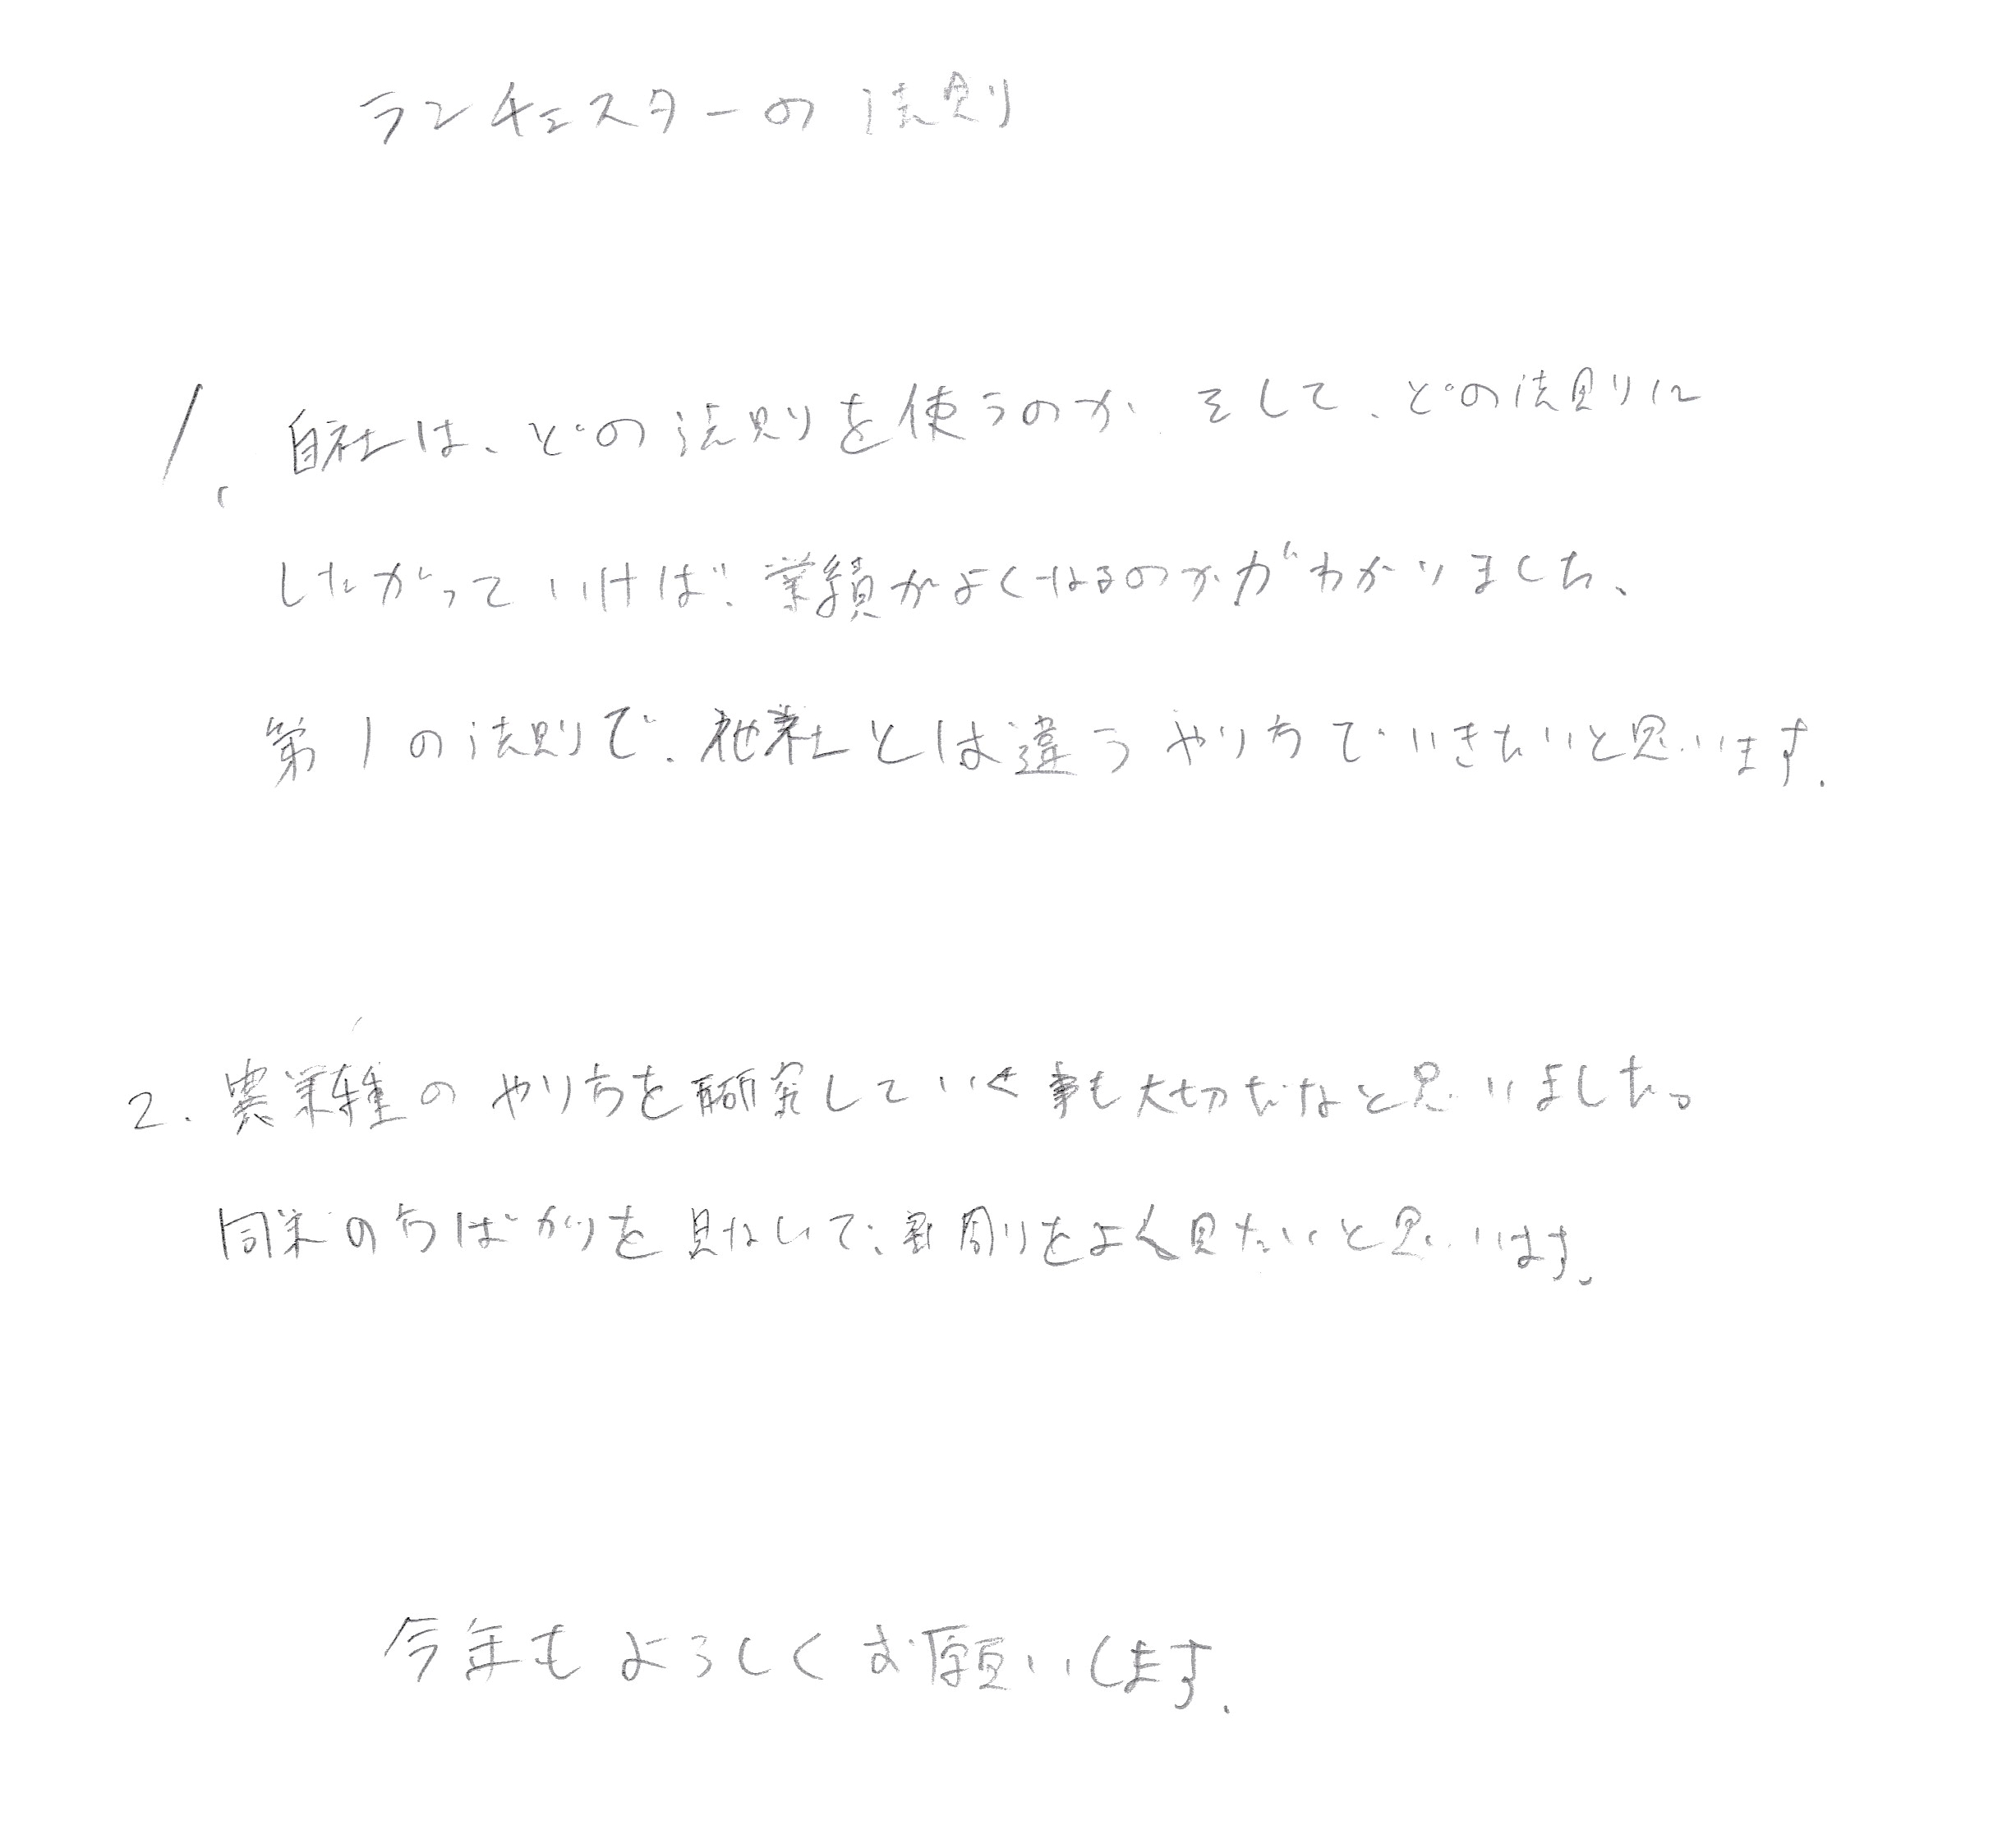 ランチェスターの法則
1. 自社は、どの法則を使うのか そして、どの法則に
したがっていけば、業績がよくなるのかがわかりました、
第1の法則で、他社とは違うやり方でいきたいと思います.
2. 異業種のやり方を研究していく事も大切だなと思いました。
同業の方ばかりを見ないで、周りをよく見たいと思います、
今年もよろしくお願いします.